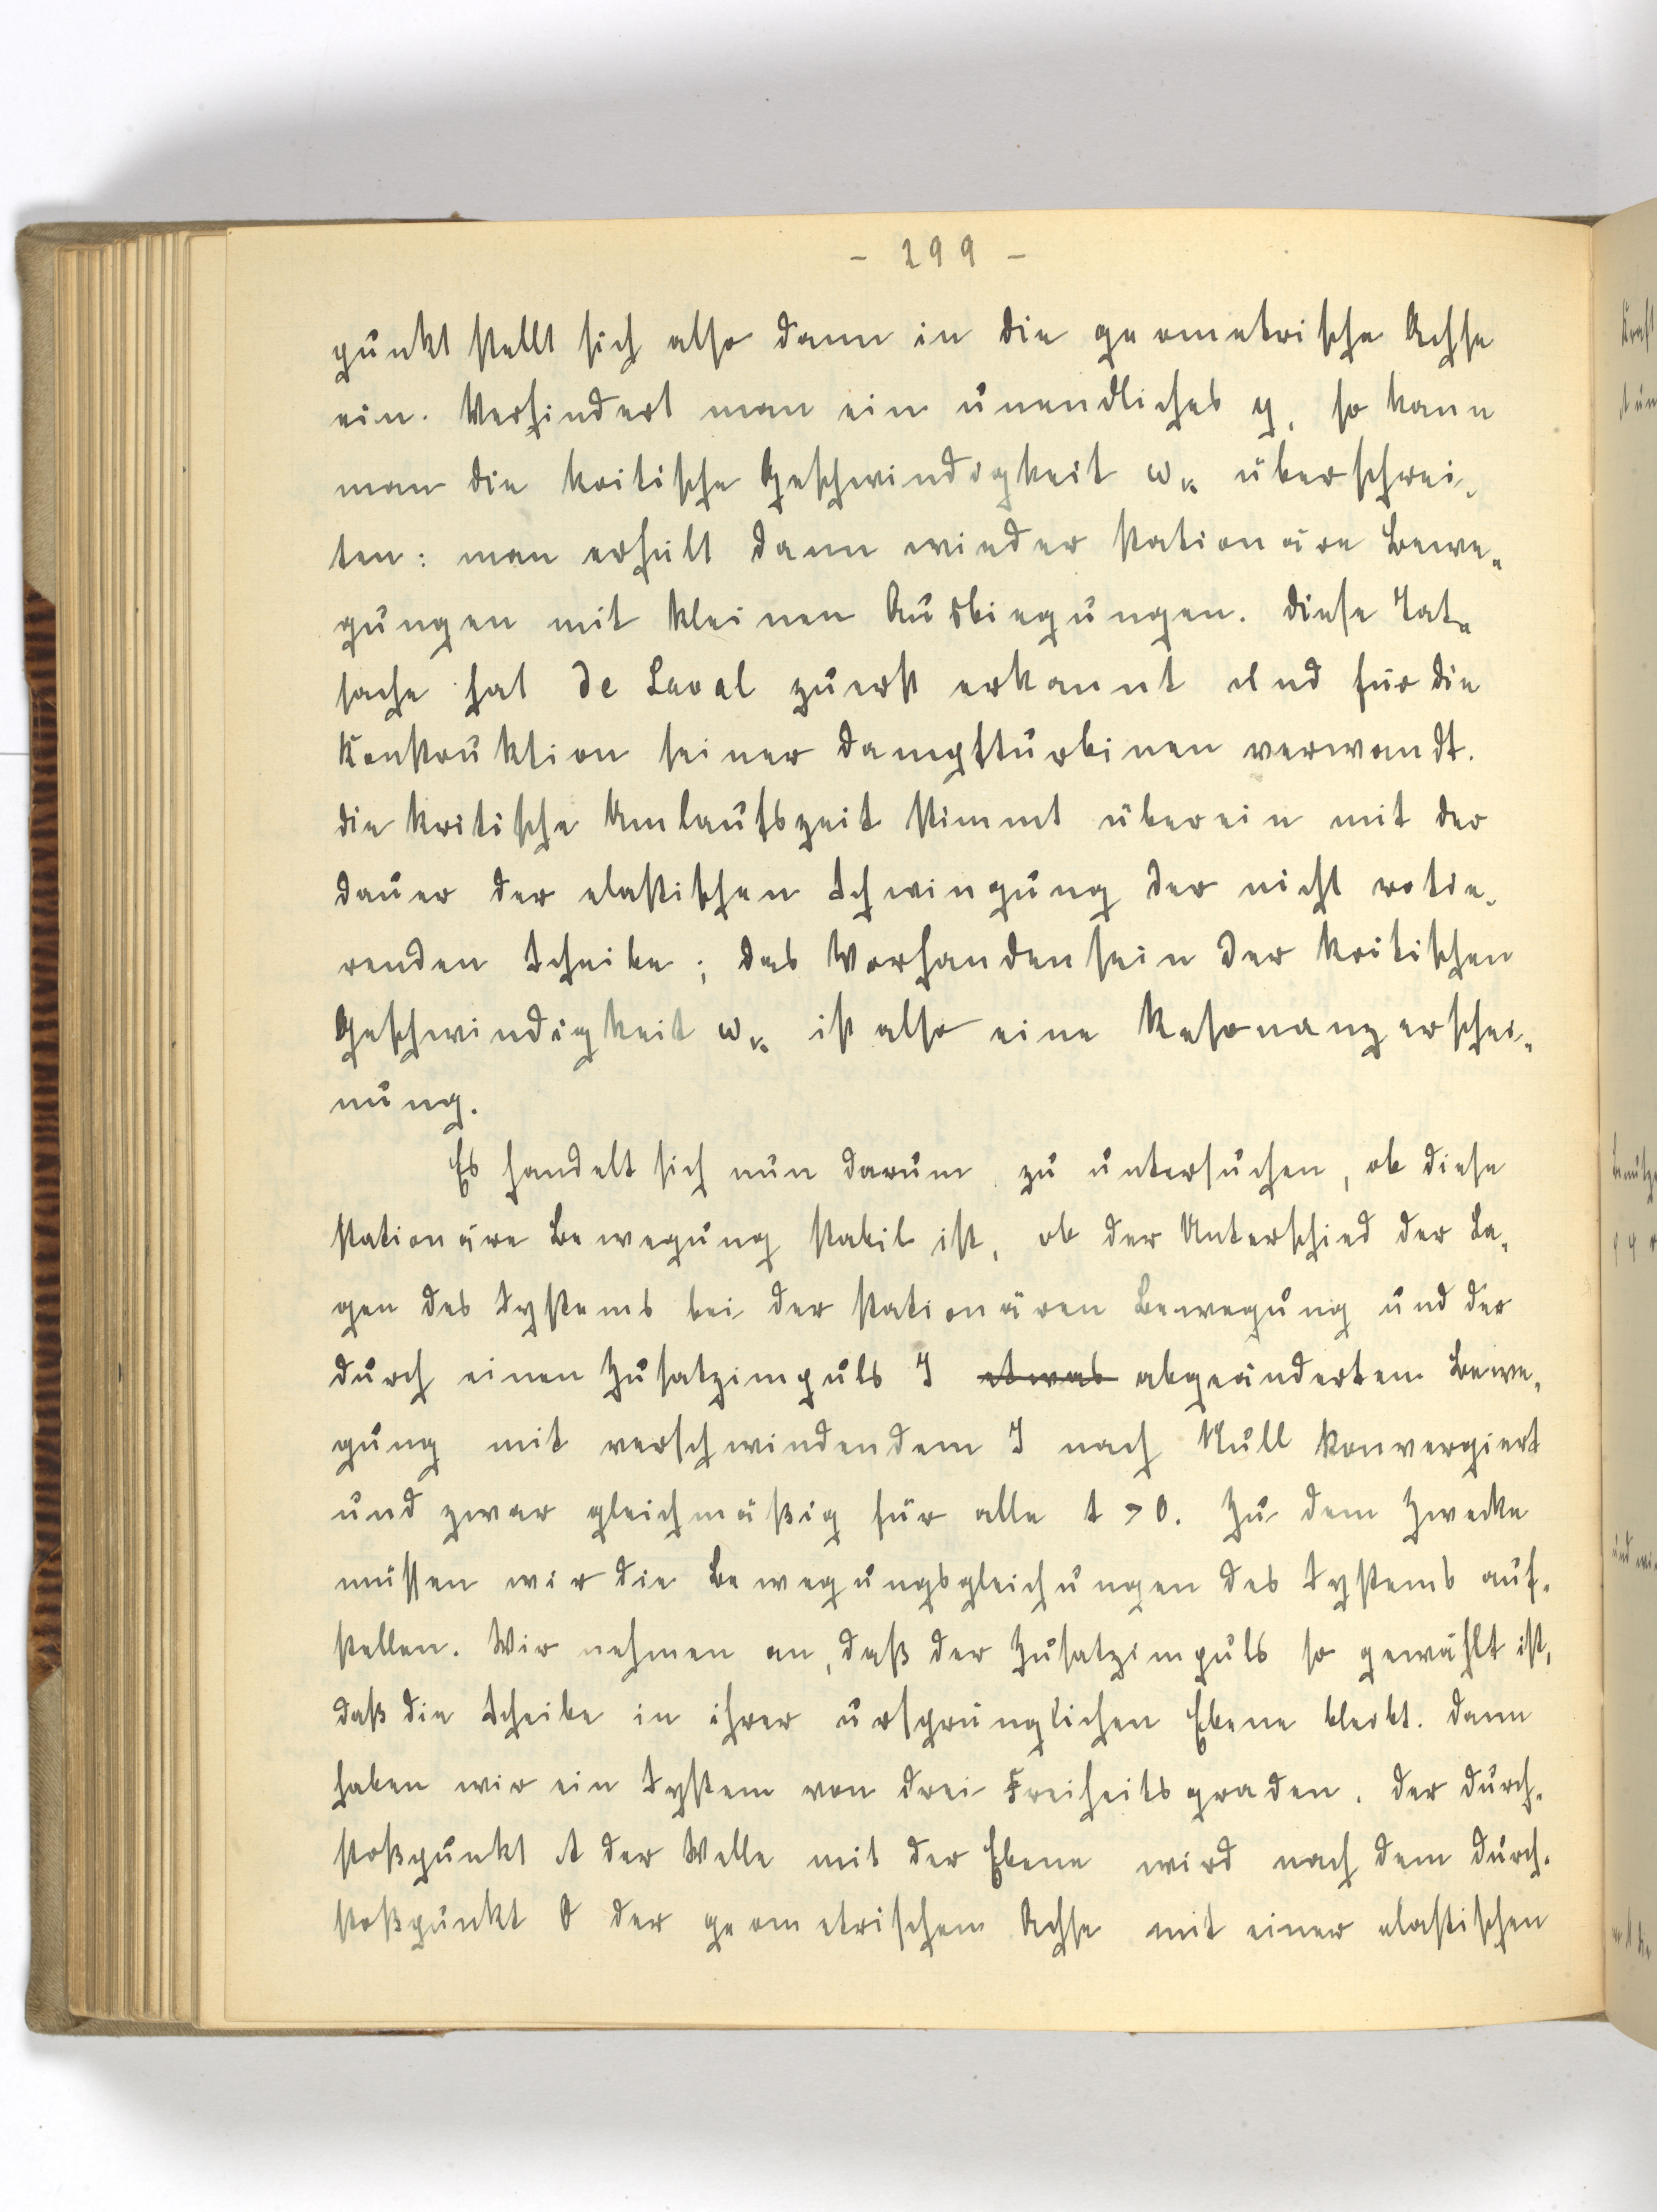 - 299 -
punkt stellt sich also dann in die geometrische Achse
ein. Verhindert man ein unendliches y, so kann
man die kritische Geschwindigkeit ωₖ überschrei-
ten: man erhält dann wieder stationäre Bewe-
gungen mit kleinen Ausbiegungen. Diese Tat-
sache hat de Laval zuerst erkannt und für die
Konstruktion seiner Dampfturbinen verwandt.
Die kritische Umlaufszeit stimmt überein mit der
Dauer der elastischen Schwingung der nicht rotie-
renden Scheibe; das Vorhandensein der kritischen
Geschwindigkeit ωₖ ist also eine Resonanzerschei-
nung.
Es handelt sich nun darum zu untersuchen, ob diese
stationäre Bewegung stabil ist, ob der Unterschied der La-
gen des Systems bei der stationären Bewegung und der
durch einen Zusatzimpuls J etwas abgeänderten Bewe-
gung mit verschwindendem J nach Null konvergiert
und zwar gleichmäßig für alle t > 0. Zu dem Zwecke
müssen wir die Bewegungsgleichungen des Systems auf-
stellen. Wir nehmen an, daß der Zusatzimpuls so gewählt ist,
daß die Scheibe in ihrer ursprünglichen Ebene bleibt. Dann
haben wir ein System von drei Freiheitsgraden. Der Durch-
stoßpunkt A der Welle mit der Ebene wird nach dem Durch-
stoßpunkt O der geometrischen Achse mit einer elastischen